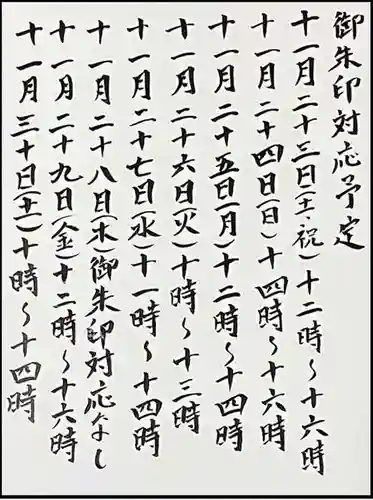 御朱印対応予定
十一月二十三日(土・祝)十二時～十六時
十一月二十四日(日)十四時～十六時
十一月二十五日(月)十二時～十四時
十一月二十六日(火)十時～十三時
十一月二十七日(水)十一時～十四時
十一月二十八日(木)御朱印対応なし
十一月二十九日(金)十二時～十六時
十一月三十日(土)十時～十四時